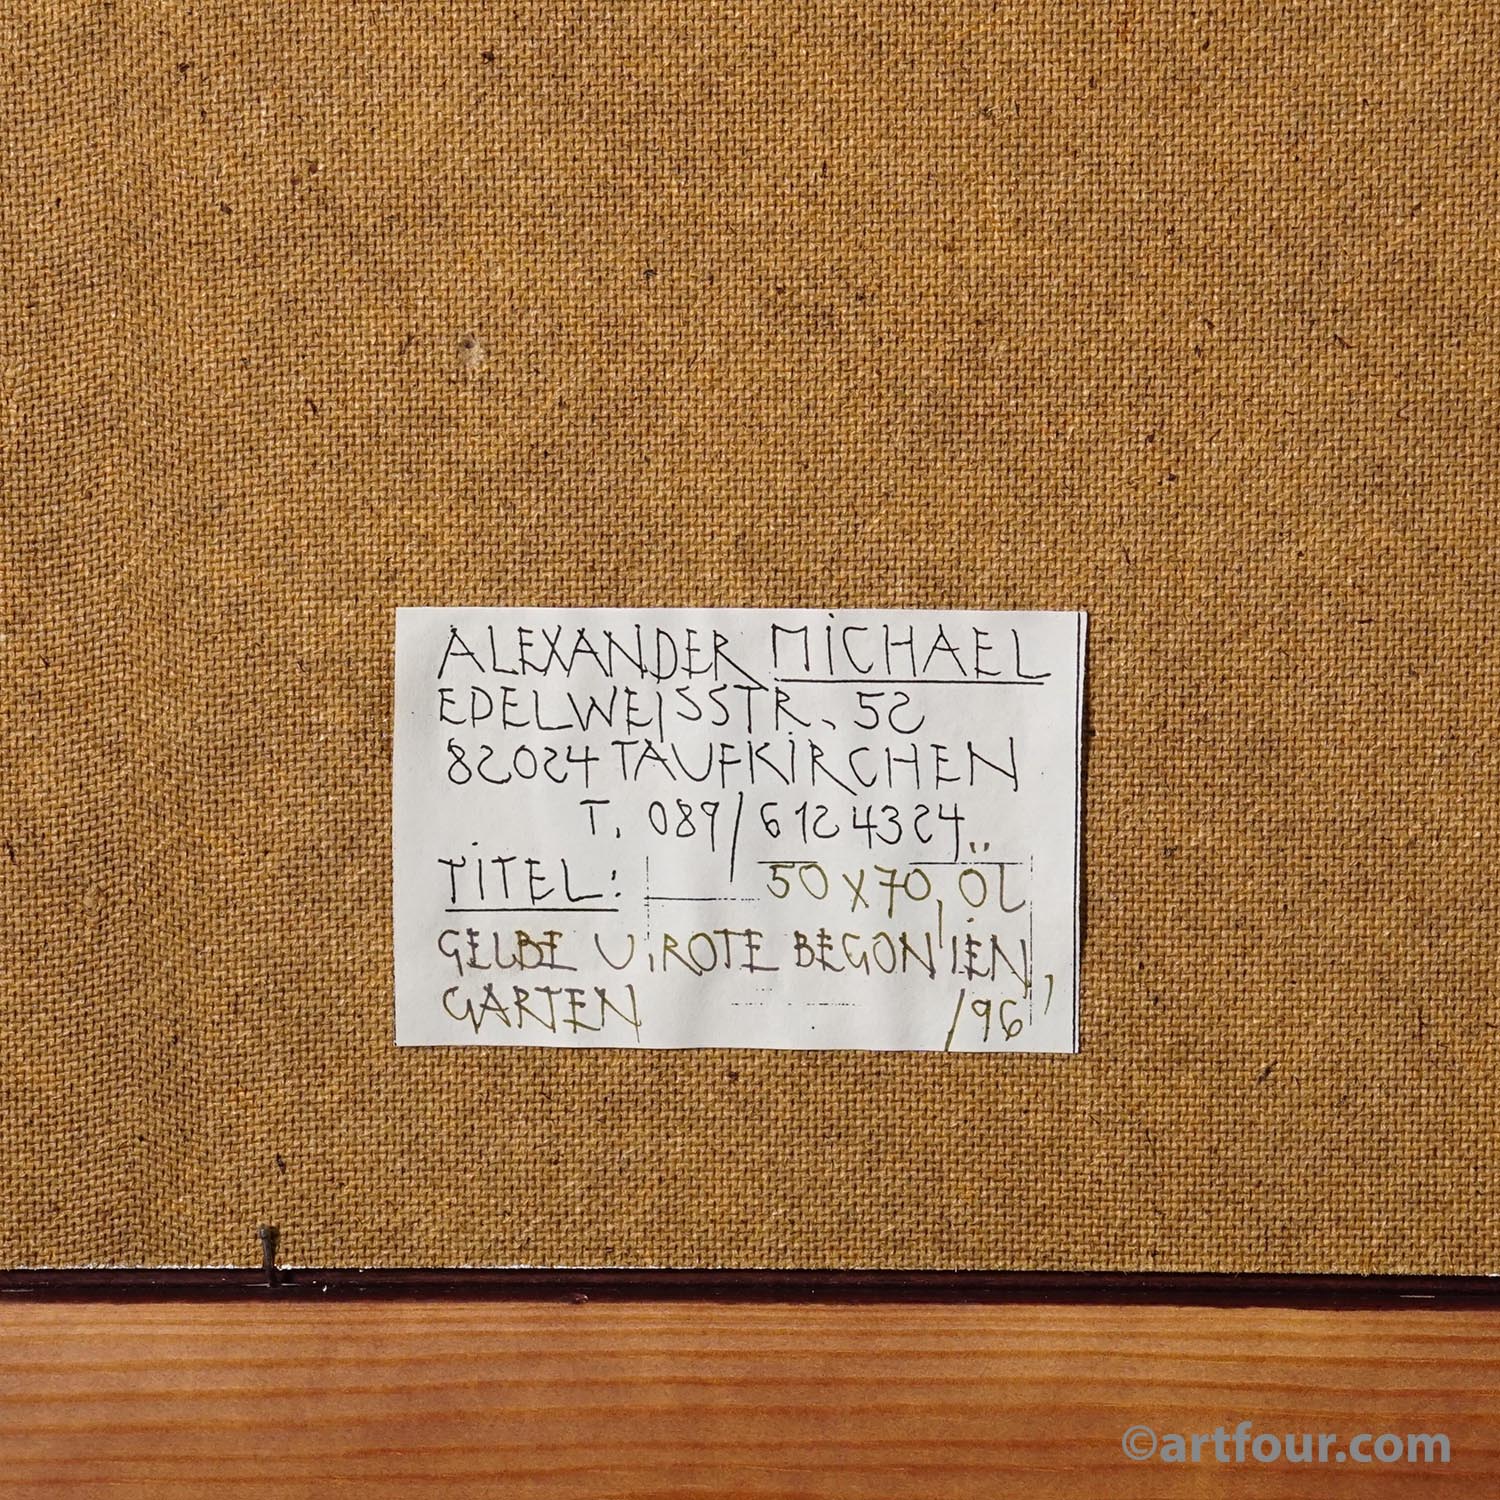 ALEXANDER MICHAEL
EDELWEISSSTR. 52
82024 TAUFKIRCHEN
T. 089/6124324
TITEL: 50 x 70, ÖL
GELBE U. ROTE BEGONIEN,
GARTEN /96
©artfour.com